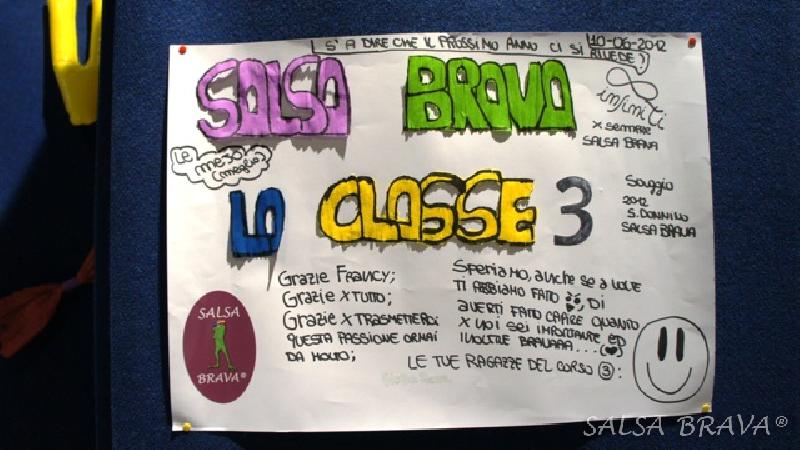 S'A DIRE CHE IL PROSSIMO ANNO CI SI RIVEDE!
10-06-2012
SALSA BRAVA
infiniti
x sempre
SALSA BRAVA
LE
mejo!
(meglio)
LA CLASSE 3
Saggio
2012
S. DONNINO
SALSA BRAVA
Grazie FRANCY;
Grazie X TUTTO;
Grazie X TRASMETTERCI
QUESTA PASSIONE ORMAI
DA MOLTO;
Speriamo, anche se a volte
TI ABBIAMO FATO DI
AVERTI FATO CAPIRE QUANTO
X NOI SEI IMPORTANTE ED
INOLTRE BRAVAAA...
LE TUE RAGAZZE DEL CORSO 3:
SALSA
BRAVA®
SALSA BRAVA®